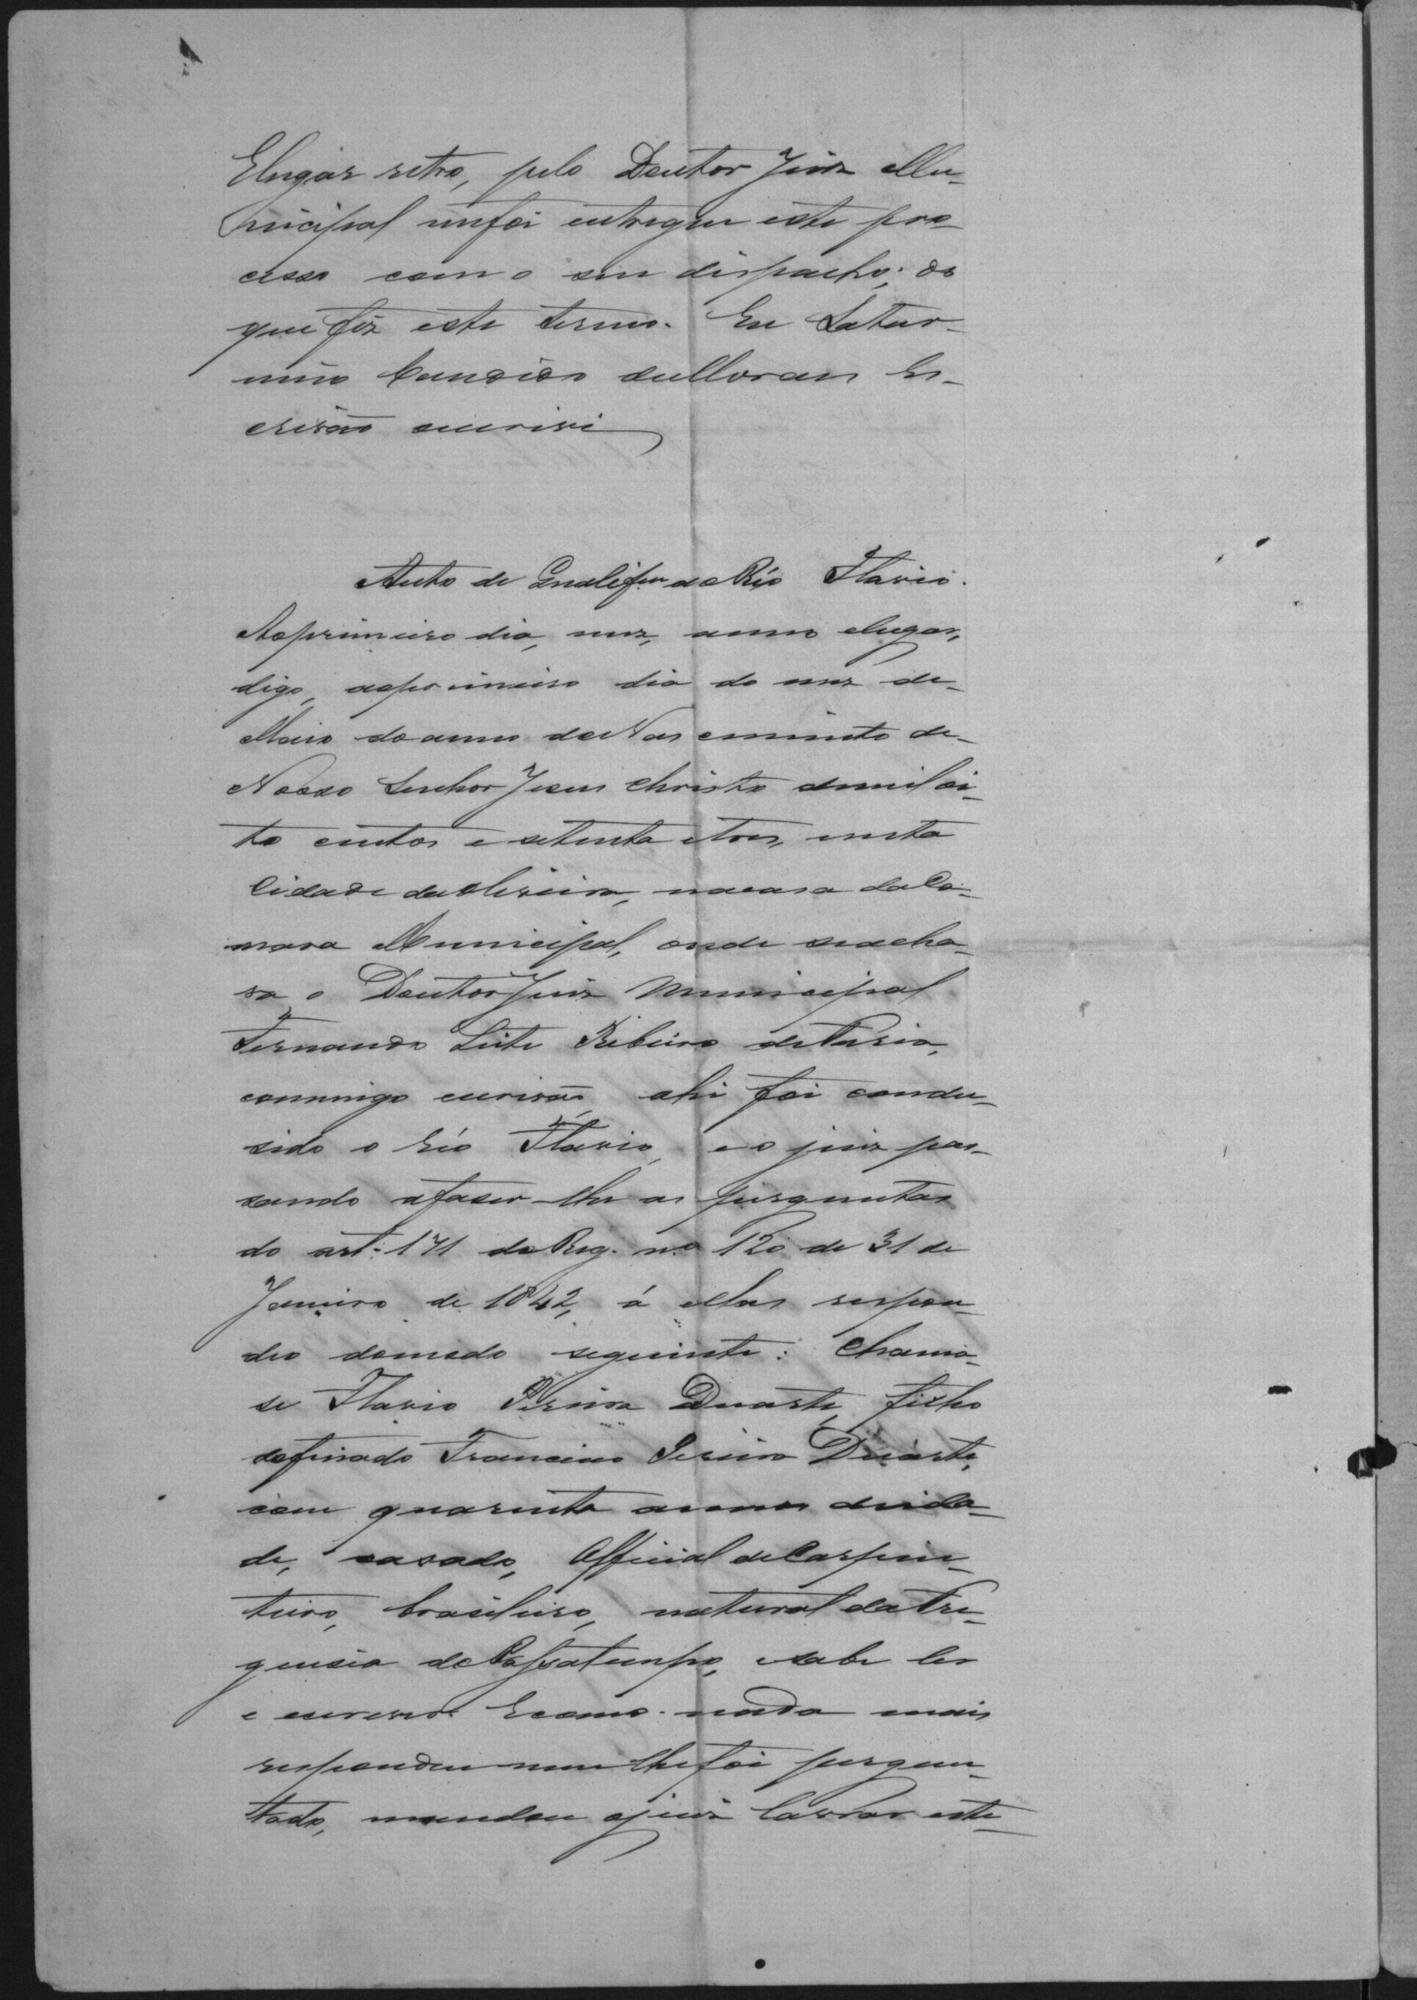 E lugar retro, pelo Doutor Juiz Mu-
nicipal me foi entregue este pro-
cesso com o seu dispacho; do
que fiz este termo. Eu Satur-
nino Candido de Moraes Es-
crivão escrivi
Auto de Qualifam do Réo Flavio.
Ao primeiro dia, mez, anno e lugar,
digo, ao primeiro dia do mez de-
Maio do anno do Nascimento de-
Nosso Senhor Jesus Christo de mil oi-
to centos e setenta e tres, nesta
Cidade da Oliveira, na casa da Ca-
mara Municipal, onde se acha-
va o Doutor Juiz Municipal
Fernando Leite Ribeiro de Faria,
commigo escrivão, ahi foi condu-
sido o réo Flavio, e o juiz pas-
sando a faser-lhe as perguntas
do art. 171 do Reg. no 120 de 31 de
Janeiro de 1842, á ellas respon-
deo do modo seguinte: Chama-
se Flavio Pereira Duarte, filho
do finado Francisco Pereira Duarte,
com quarenta annos de ida-
de, casado, Official de Carpin-
teiro, brasileiro, natural da Fre-
guesia do Passatempo, e sabe ler
e escrever. E como nada mais
respondeu nem lhe foi pergun-
tado, mandou o juiz lavrar este